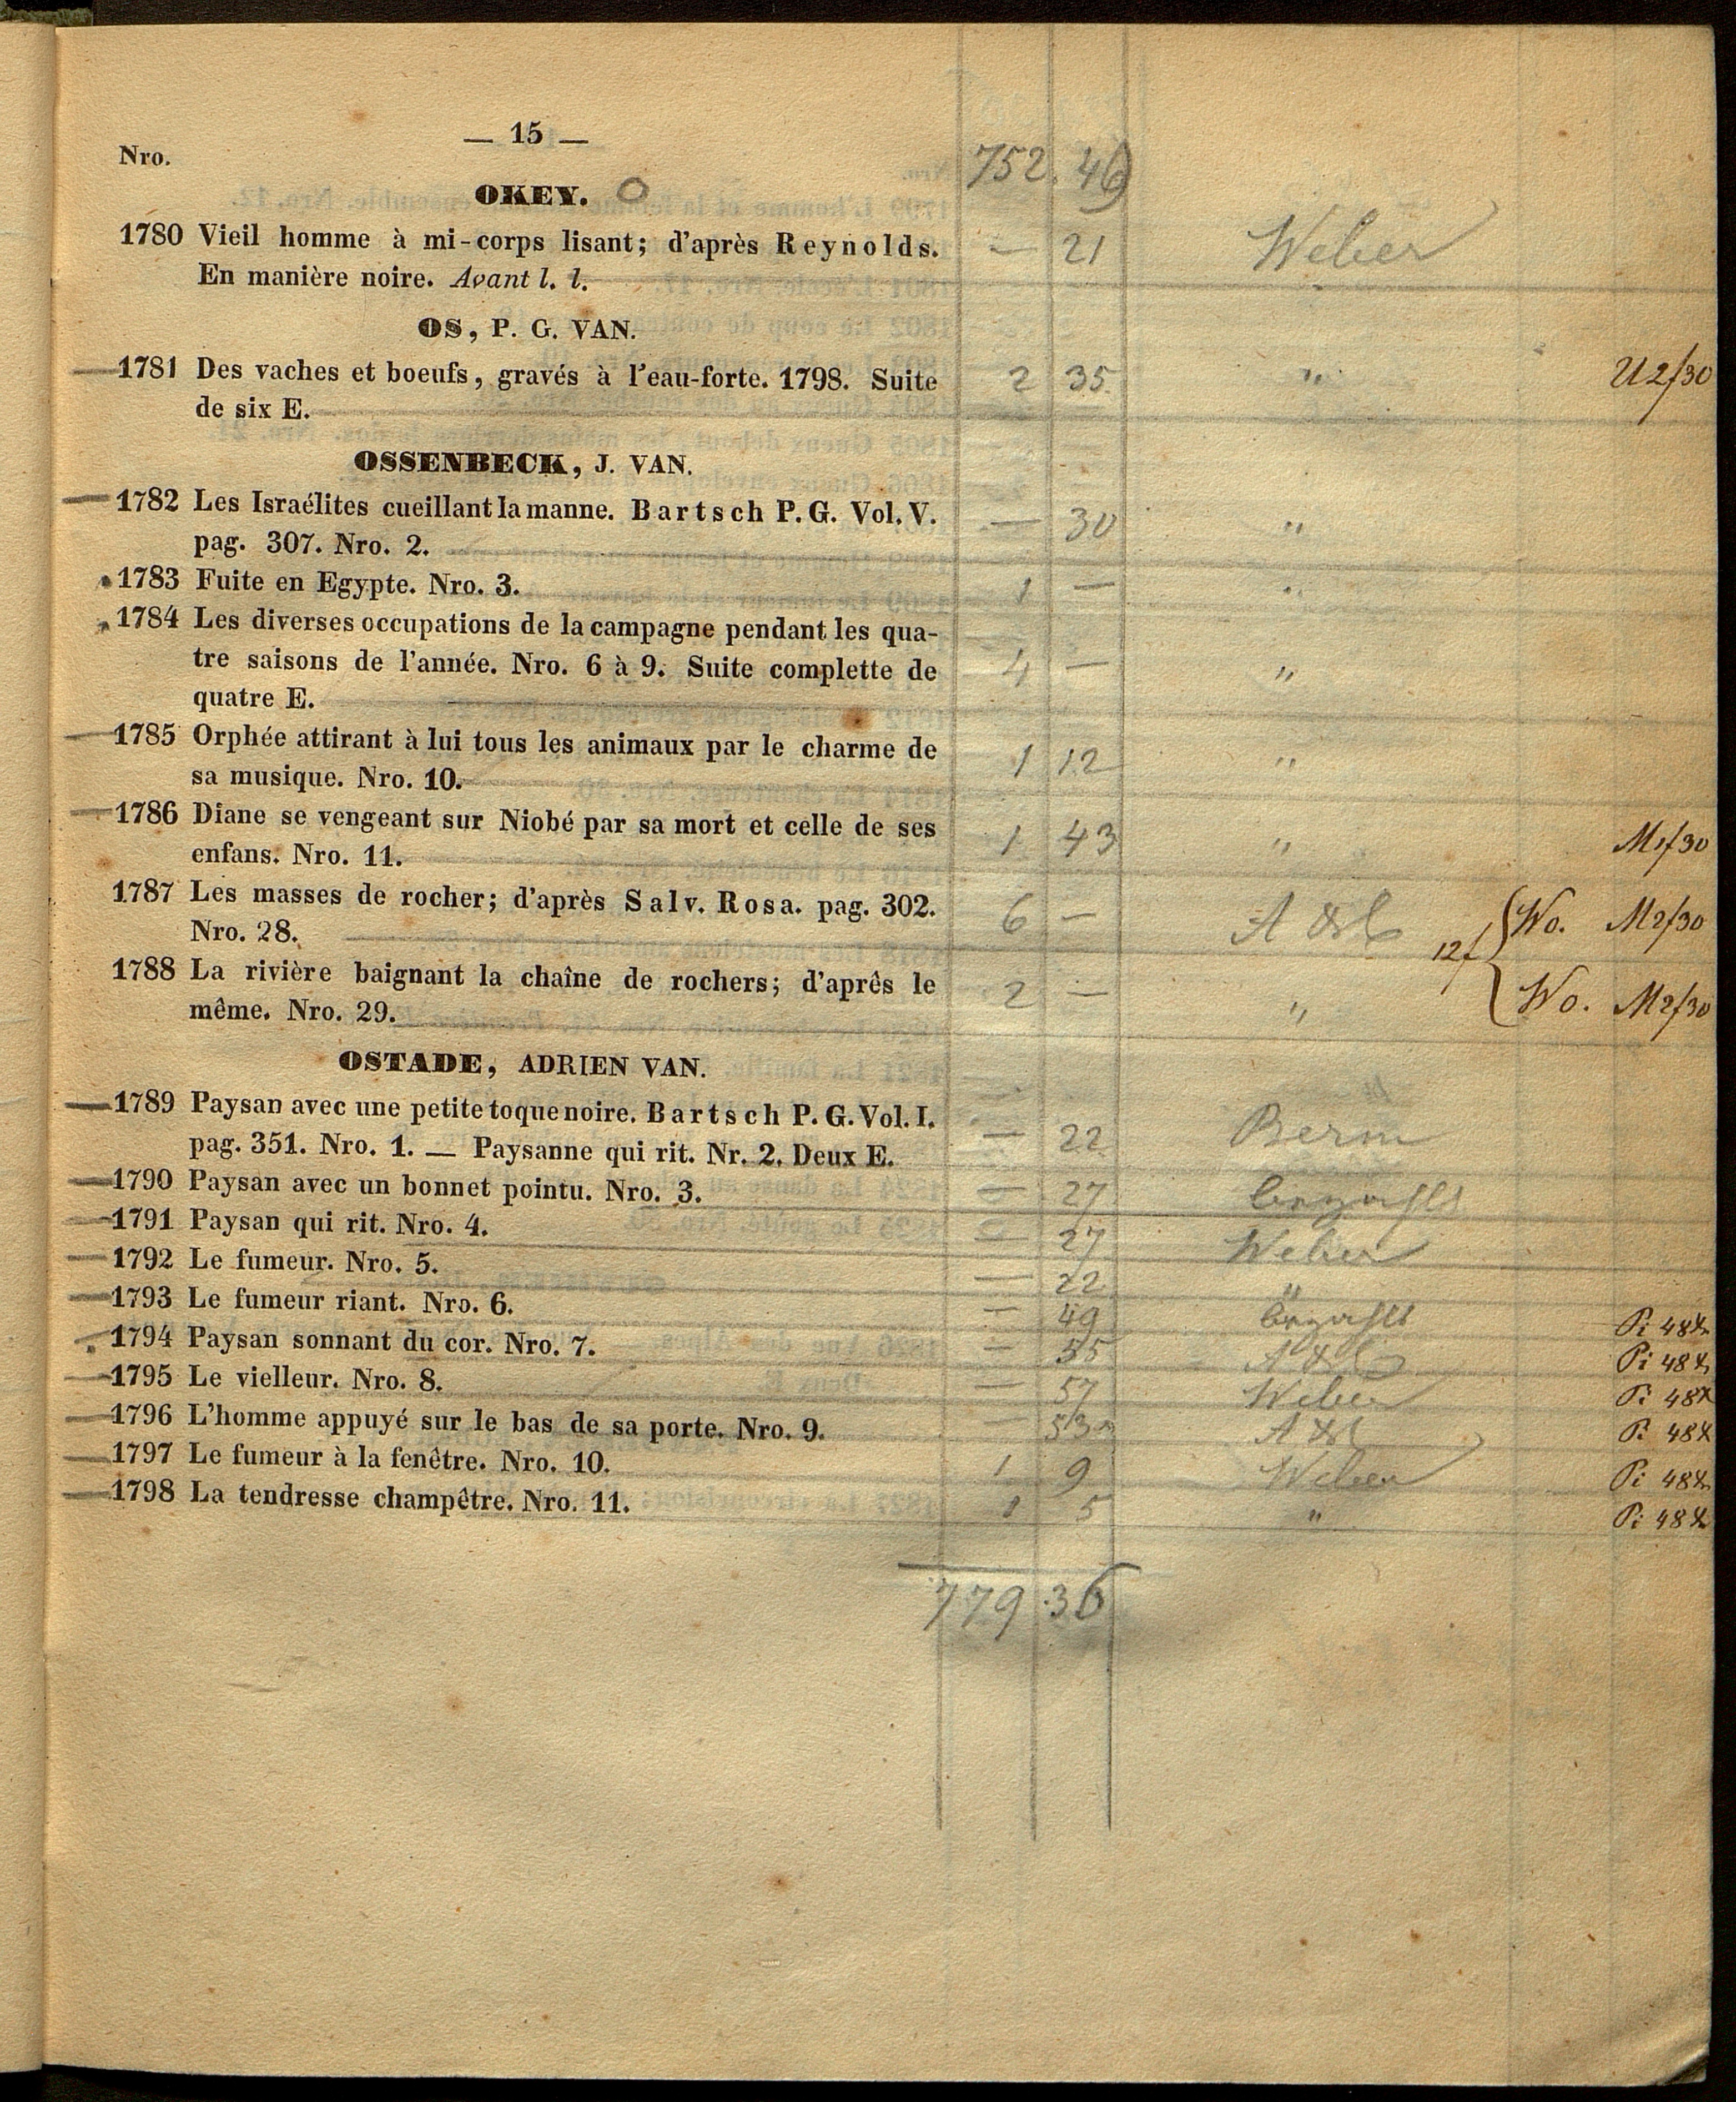 — 15 —
Nro.
752. 46
OKEY. O
1780 Vieil homme à mi-corps lisant; d'après Reynolds. — 21 Weber
En manière noire. Avant l. l.
OS, P. G. VAN.
1781 Des vaches et boeufs, gravés à l'eau-forte. 1798. Suite 2 35 " U 2f30
de six E.
OSSENBECK, J. VAN.
1782 Les Israélites cueillant la manne. Bartsch P. G. Vol. V. — 30 "
pag. 307. Nro. 2.
1783 Fuite en Egypte. Nro. 3. 1 — "
1784 Les diverses occupations de la campagne pendant les qua-
tre saisons de l'année. Nro. 6 à 9. Suite complette de 4 — "
quatre E.
1785 Orphée attirant à lui tous les animaux par le charme de 1 12 "
sa musique. Nro. 10.
1786 Diane se vengeant sur Niobé par sa mort et celle de ses 1 43 " M1f30
enfans. Nro. 11.
1787 Les masses de rocher; d'après Salv. Rosa. pag. 302. 6 — Wo. M2f30
Nro. 28.
12f
1788 La rivière baignant la chaîne de rochers; d'après le 2 — " Wo. M2f30
même. Nro. 29.
OSTADE, ADRIEN VAN.
1789 Paysan avec une petite toque noire. Bartsch P. G. Vol. I. — 22
pag. 351. Nro. 1. — Paysanne qui rit. Nr. 2. Deux E.
1790 Paysan avec un bonnet pointu. Nro. 3. — 27
1791 Paysan qui rit. Nro. 4. — 27 Weber
1792 Le fumeur. Nro. 5. — 22 "
1793 Le fumeur riant. Nro. 6. — 49 Pi 48x
1794 Paysan sonnant du cor. Nro. 7. — 55 Pi 48x
1795 Le vielleur. Nro. 8. — 57 Weber Pi 48x
1796 L'homme appuyé sur le bas de sa porte. Nro. 9. 53 Pi 48x
1797 Le fumeur à la fenêtre. Nro. 10. 1 9 Weber Pi 48x
1798 La tendresse champêtre. Nro. 11. 1 5 " Pi 48x
779.36